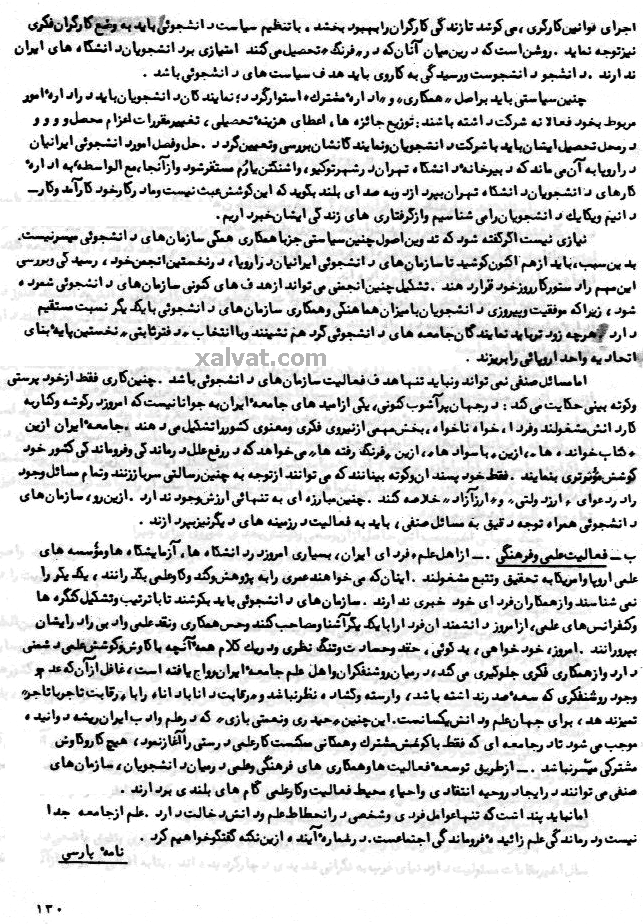 اجرای قوانین کارگری ، می کوشد تا زندگی کارگران را بهبود بخشد . با تنظیم سیاست دانشجوئی باید به وضع کارگران فکری
نیز توجه نماید . روشن است که در این میان آنان که در « فرنگ » تحصیل می کنند امتیازی بر دانشجویان دانشگاه های ایران
ندارند . دانشجو دانشجوست و رسیدگی به کار وی باید هدف سیاست های دانشجوئی باشد .
چنین سیاستی باید بر اصل « همکاری » و « اداره مشترک » استوار گردد ؛ نمایندگان دانشجویان باید در اداره امور
مربوط بخود فعالانه شرکت داشته باشند : توزیع جائزه ها ، اعطای هزینه تحصیلی ، تغییر مقررات اعزام محصل و و و و
در محل تحصیل ایشان باید با شرکت دانشجویان و نمایندگانشان بررسی و تعیین گردد . حل و فصل امور دانشجوئی ایرانیان
در اروپا به آن می ماند که دبیرخانه دانشگاه تهران در شهر توکیو ، واشنگتن یا رُم مستقر شود و از آنجا ، مع الواسطه به اداره
کارهای دانشجویان دانشگاه تهران بپردازد و به صدای بلند بگوید که این کوشش عبث نیست و ما در کار خود کارآمد و کار ـ
دانیم و یکایک دانشجویان را می شناسیم و از گرفتاری های زندگی ایشان خبر داریم .
نیازی نیست اگر گفته شود که تدوین اصول چنین سیاستی جز با همکاری همگی سازمان های دانشجوئی میسر نیست .
بدین سبب ، باید از هم اکنون کوشید تا سازمان های دانشجوئی ایرانیان در اروپا ، در نخستین انجمن خود ، رسیدگی و بررسی
این مهم را دستور کار روز خود قرار دهند . تشکیل چنین انجمنی می تواند از هدف های کنونی سازمان های دانشجوئی شمرده
شود ، زیرا که موفقیت و پیروزی دانشجویان با میزان هماهنگی و همکاری سازمان های دانشجوئی با یکدیگر نسبت مستقیم
دارد . هرچه زودتر باید نمایندگان جامعه های دانشجوئی گرد هم نشینند و با انتخاب « دفتر ثابتی » نخستین پایه بنای
اتحادیه واحد اروپائی را بریزند .
xalvat.com
اما مسائل صنفی نمی تواند و نباید تنها هدف فعالیت سازمان های دانشجوئی باشد . چنین کاری فقط از خود پرستی
و کوته بینی حکایت می کند : در جهان پر آشوب کنونی ، یکی از امید های جامعه ایران به جوانانیست که امروز در گوشه و کنار به
کار دانش مشغولند و فردا ، خواه ناخواه ، بخش مهمی از نیروی فکری و معنوی کشور را تشکیل می دهند . جامعه ایران از این
« کتاب خوانده ها » ، از این « با سوادها » ، از این « فرنگ رفته ها » می خواهد که در رفع علل درماندگی و فروماندگی کشور خود
کوشش مؤثرتری بنمایند . فقط خود پسندان و کوته بینانند که می توانند از توجه به چنین رسالتی سر باز زنند و تمام مسائل وجود
را در دعوای « ارز دولتی » و « ارز آزاد » خلاصه کنند . چنین مبارزه ای به تنهائی ارزش وجود ندارد . از این رو ، سازمان های
دانشجوئی همراه توجه دقیق به مسائل صنفی ، باید به فعالیت در زمینه های دیگر نیز بپردازند .
ب ـ فعالیت علمی و فرهنگی . ـ از اهل علم « فردای ایران ، بسیاری امروز در دانشگاه ها ، آزمایشگاه ها و مؤسسه های
علمی اروپا و امریکا به تحقیق و تتبع مشغولند . اینان که می خواهند عمری را به پژوهش و کند و کاو علمی بگذرانند ، یکدیگر را
نمی شناسند و از همکاران فردای خود خبری ندارند . سازمان های دانشجوئی باید بکوشند تا با ترتیب و تشکیل کنگره ها
و کنفرانس های علمی ، از امروز دانشمندان فردا را با یکدیگر آشنا و مصاحب کنند و حس همکاری و نقد علمی و ادبی را در ایشان
بپرورانند . امروز ، خود خواهی ، بد گوئی ، حقد و حسادت و تنگ نظری و در یک کلام همه آنچه با کاوش و کوشش علمی دشمنی
دارد و از همکاری فکری جلوگیری می کند ، در میان روشنفکران و اهل علم جامعه ایران رواج یافته است ، غافل از آن که عدم
وجود روشنفکری که سعه صدر نداشته باشد ، وارسته و گشاده نظر نباشد و « رقابت دانا با دانا » را با « رقابت تاجر با تاجر »
تمیز ندهد ، برای جهان علم و دانش یکسانست . این چنین « حیدری و نعمتی بازی » که در علم و ادب ایران ریشه دوانیده ،
موجب می شود تا در جامعه ای که فقط با کوشش مشترک و همگانی ممکنست کار علمی درستی را آغاز نمود ، هیچ کار و کاوش
مشترکی میسر نباشد . ـ از طریق توسعه فعالیت ها و همکاری های فرهنگی و علمی در میان دانشجویان ، سازمان های
صنفی می توانند در ایجاد روحیه انتقادی و احیاء محیط فعالیت و کار علمی گام های بلندی بردارند .
اما نباید پنداشت که تنها عوامل فردی و شخصی در انحطاط علم و دانش دخالت دارد . علم از جامعه جدا
نیست و درماندگی علم زائیده فروماندگی اجتماعست . در شماره آینده از این نکته گفتگو خواهیم کرد .
نامه پارسی
۱۳۰